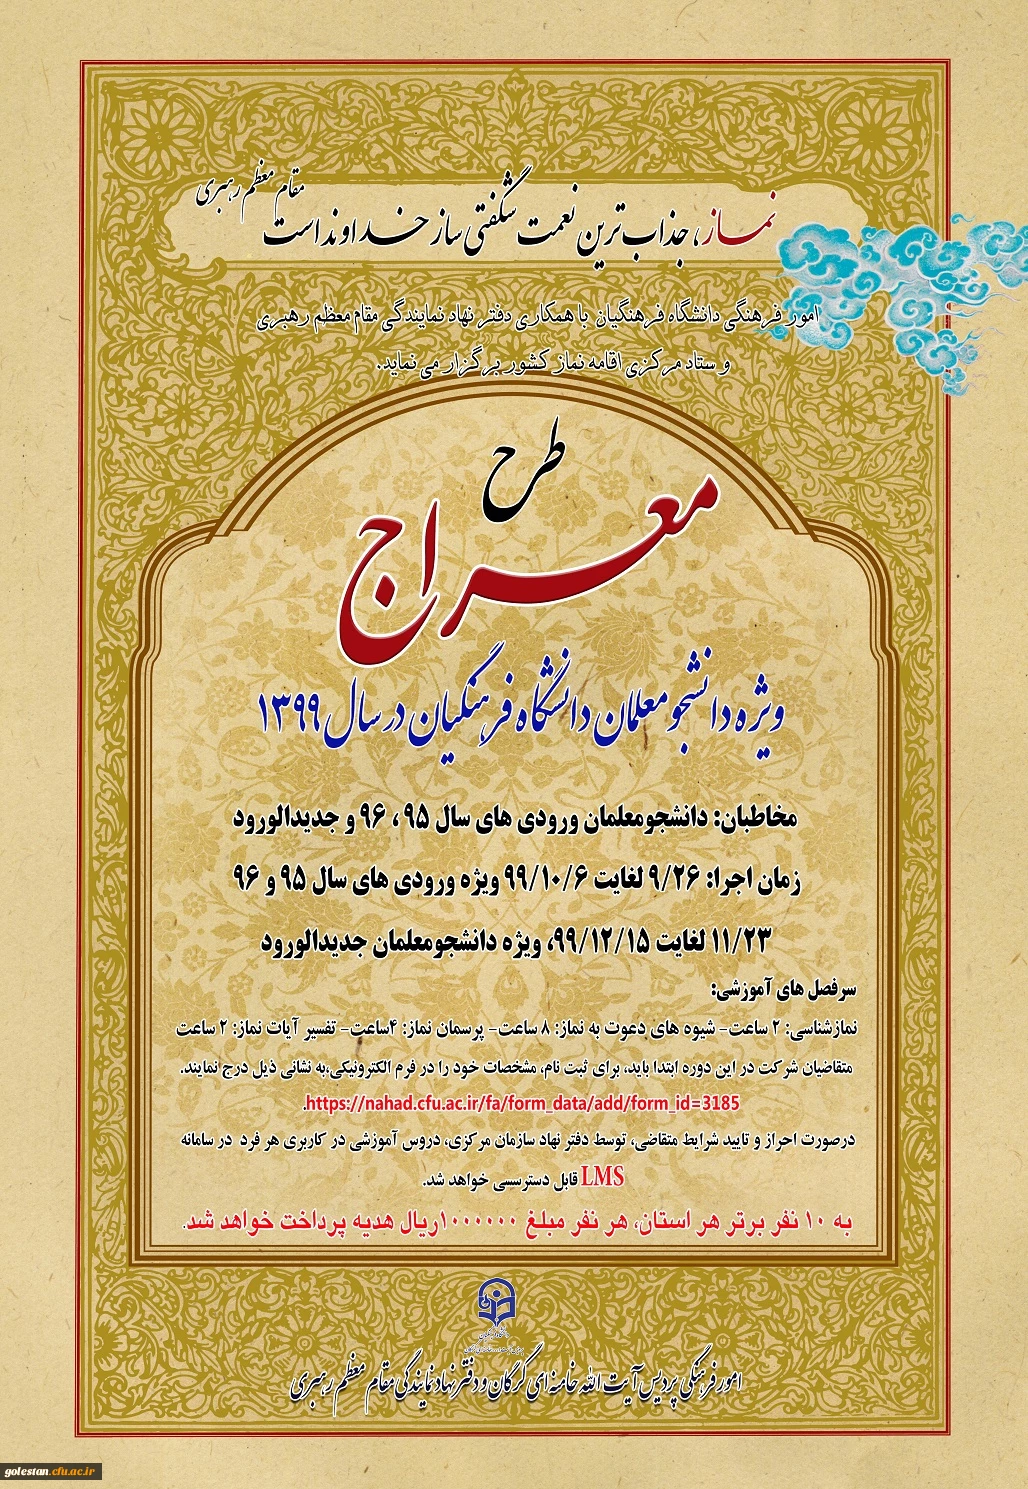 نماز، جذاب‌ترین نعمت شگفتی ساز خداوند است
مقام معظم رهبری
امور فرهنگی دانشگاه فرهنگیان با همکاری دفتر نهاد نمایندگی مقام معظم رهبری
و ستاد مرکزی اقامه نماز کشور برگزار می نماید.
طرح
معراج
ویژه دانشجومعلمان دانشگاه فرهنگیان در سال ۱۳۹۹
مخاطبان: دانشجومعلمان ورودی های سال ۹۵ ، ۹۶ و جدیدالورود
زمان اجرا: ۹/۲۶ لغایت ۹۹/۱۰/۶ ویژه ورودی های سال ۹۵ و ۹۶
۱۱/۲۳ لغایت ۹۹/۱۲/۱۵، ویژه دانشجومعلمان جدیدالورود
سرفصل های آموزشی:
نمازشناسی: ۲ ساعت- شیوه های دعوت به نماز: ۸ ساعت- پرسمان نماز: ۴ساعت- تفسیر آیات نماز: ۲ ساعت
متقاضیان شرکت در این دوره ابتدا باید، برای ثبت نام، مشخصات خود را در فرم الکترونیکی،به نشانی ذیل درج نمایند.
https://nahad.cfu.ac.ir/fa/form_data/add/form_id=3185.
درصورت احراز و تایید شرایط متقاضی، توسط دفتر نهاد سازمان مرکزی، دروس آموزشی در کاربری هر فرد در سامانه
LMS قابل دسترسی خواهد شد.
به ۱۰ نفر برتر هر استان، هر نفر مبلغ ۱۰۰۰۰۰۰ریال هدیه پرداخت خواهد شد.
امور فرهنگی پردیس آیت الله خامنه ای گرگان و دفتر نهاد نمایندگی مقام معظم رهبری
golestan.cfu.ac.ir